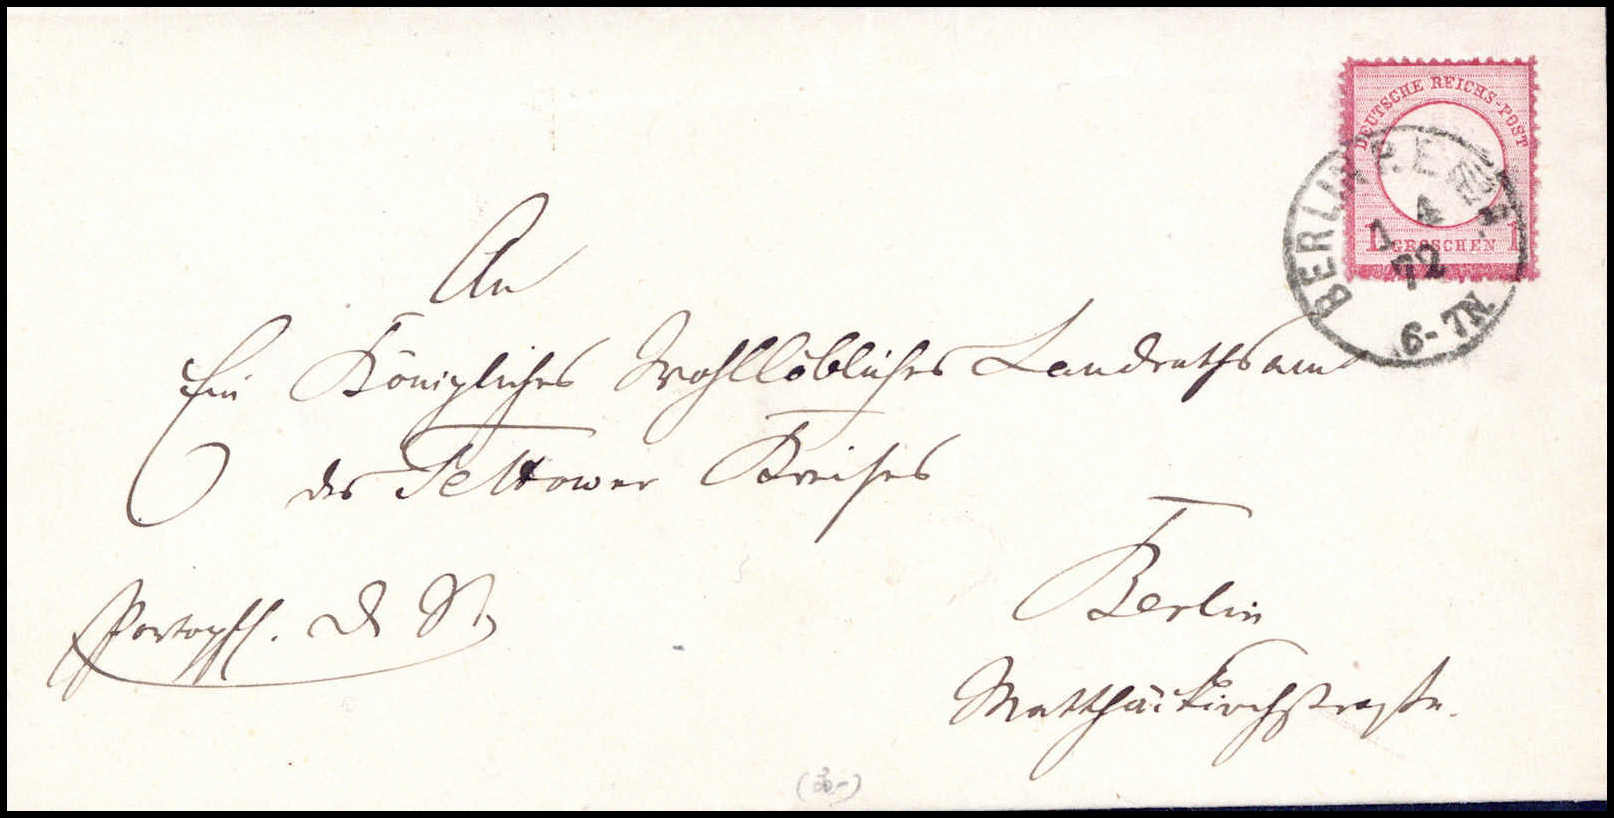 DEUTSCHE REICHS-POST
1 GROSCHEN 1
BERLIN P.E.
1 4
72
6-7N.
An
Ein Königliches Wohllöbliches Landrathsamt
des Teltower Kreises
Berlin
Matthäikirchstraße.
Portopfl. D. S.